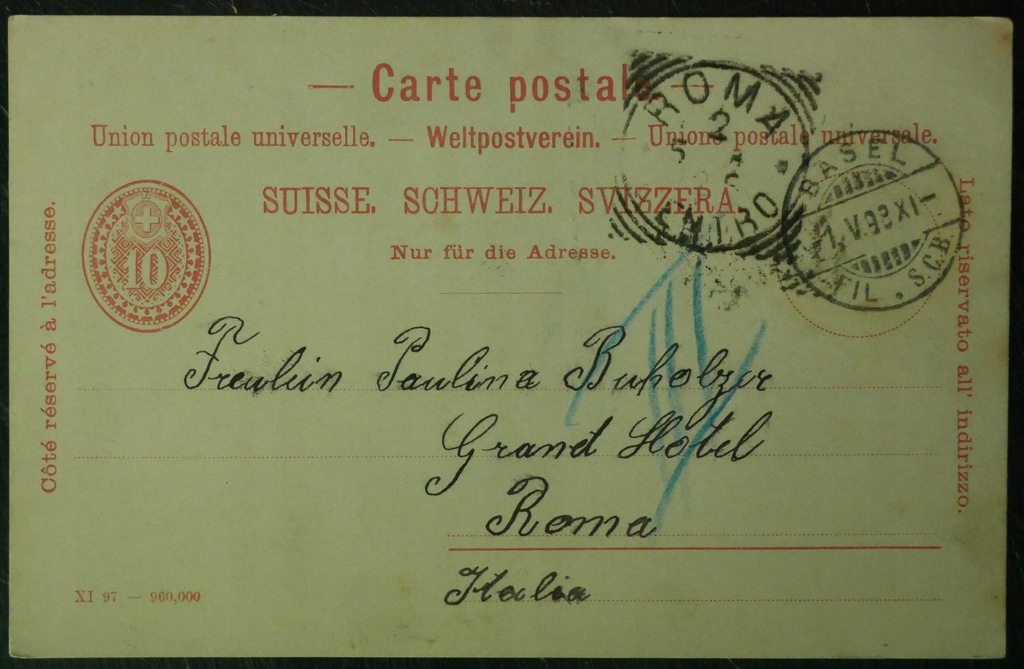 — Carte postale —
Union postale universelle. — Weltpostverein. — Unione postale universale.
SUISSE. SCHWEIZ. SVIZZERA.
Nur für die Adresse.
Côté réservé à l'adresse.
10
ROMA
2
5
CENTRO
BASEL
V.98 XI–
FIL. S.C.B.
Lato riservato all' indirizzo.
Freulein Paulina Buholzer
Grand Hotel
Roma
Italia
XI 97 — 960,000